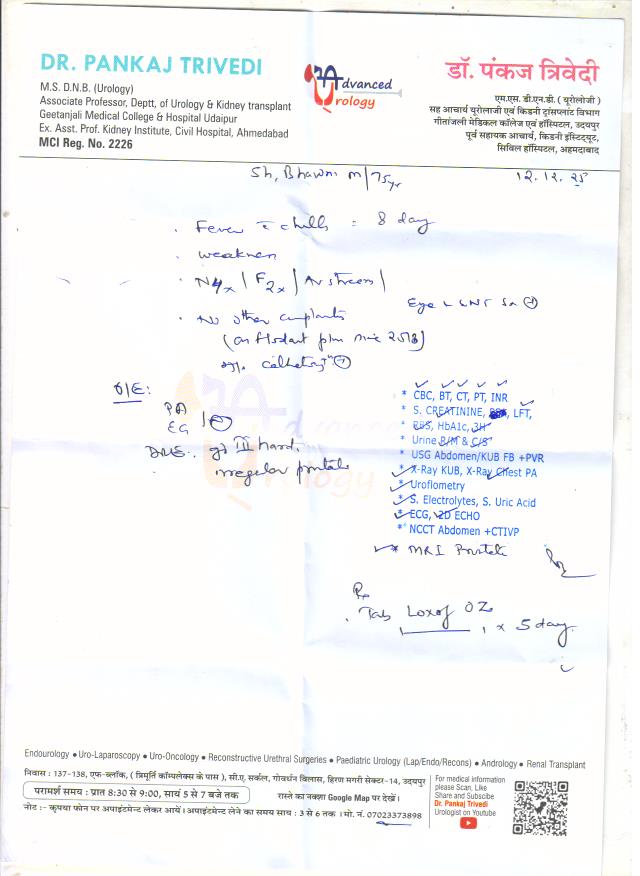 DR. PANKAJ TRIVEDI
M.S. D.N.B. (Urology)
Associate Professor, Deptt. of Urology & Kidney transplant
Geetanjali Medical College & Hospital Udaipur
Ex. Asst. Prof. Kidney Institute, Civil Hospital, Ahmedabad
MCI Reg. No. 2226
Advanced
Urology
डॉ. पंकज त्रिवेदी
एम.एस. डी.एन.बी. ( यूरोलोजी )
सह आचार्य यूरोलोजी एवं किडनी ट्रांसप्लांट विभाग
गीतांजली मेडिकल कॉलेज एवं हॉस्पिटल, उदयपुर
पूर्व सहायक आचार्य, किडनी इंस्टिट्यूट,
सिविल हॉस्पिटल, अहमदाबाद
Sh, M/75yr
12.12.25
. Fever c chills = 8 day
. weakness
. N4x | F2x |
. No other complaints
(on since 2018)
O/E:
PA
EG
DRE: gr III hard,
irregular prostate
* CBC, BT, CT, PT, INR
* S. CREATININE, LFT,
* RBS, HbA1c, 3H
* Urine R/M & C/S
* USG Abdomen/KUB FB +PVR
* X-Ray KUB, X-Ray Chest PA
* Uroflometry
* S. Electrolytes, S. Uric Acid
* ECG, 2D ECHO
* NCCT Abdomen +CTIVP
* MRI Prostate
Rx
. Tab Loxof OZ x 5 day
Endourology • Uro-Laparoscopy • Uro-Oncology • Reconstructive Urethral Surgeries • Paediatric Urology (Lap/Endo/Recons) • Andrology • Renal Transplant
निवास : 137-138, एफ-ब्लॉक, ( त्रिमूर्ति कॉम्पलेक्स के पास ), सी.ए. सर्कल, गोवर्धन विलास, हिरण मगरी सेक्टर-14, उदयपुर
परामर्श समय : प्रातः 8:30 से 9:00, सायं 5 से 7 बजे तक
रास्ते का नक्शा Google Map पर देखें।
नोट :- कृपया फोन पर अपाइंटमेन्ट लेकर आयें। अपाइंटमेन्ट लेने का समय सायं : 3 से 6 तक । मो. नं. 07023373898
For medical information
please Scan, Like
Share and Subscibe
Dr. Pankaj Trivedi
Urologist on Youtube